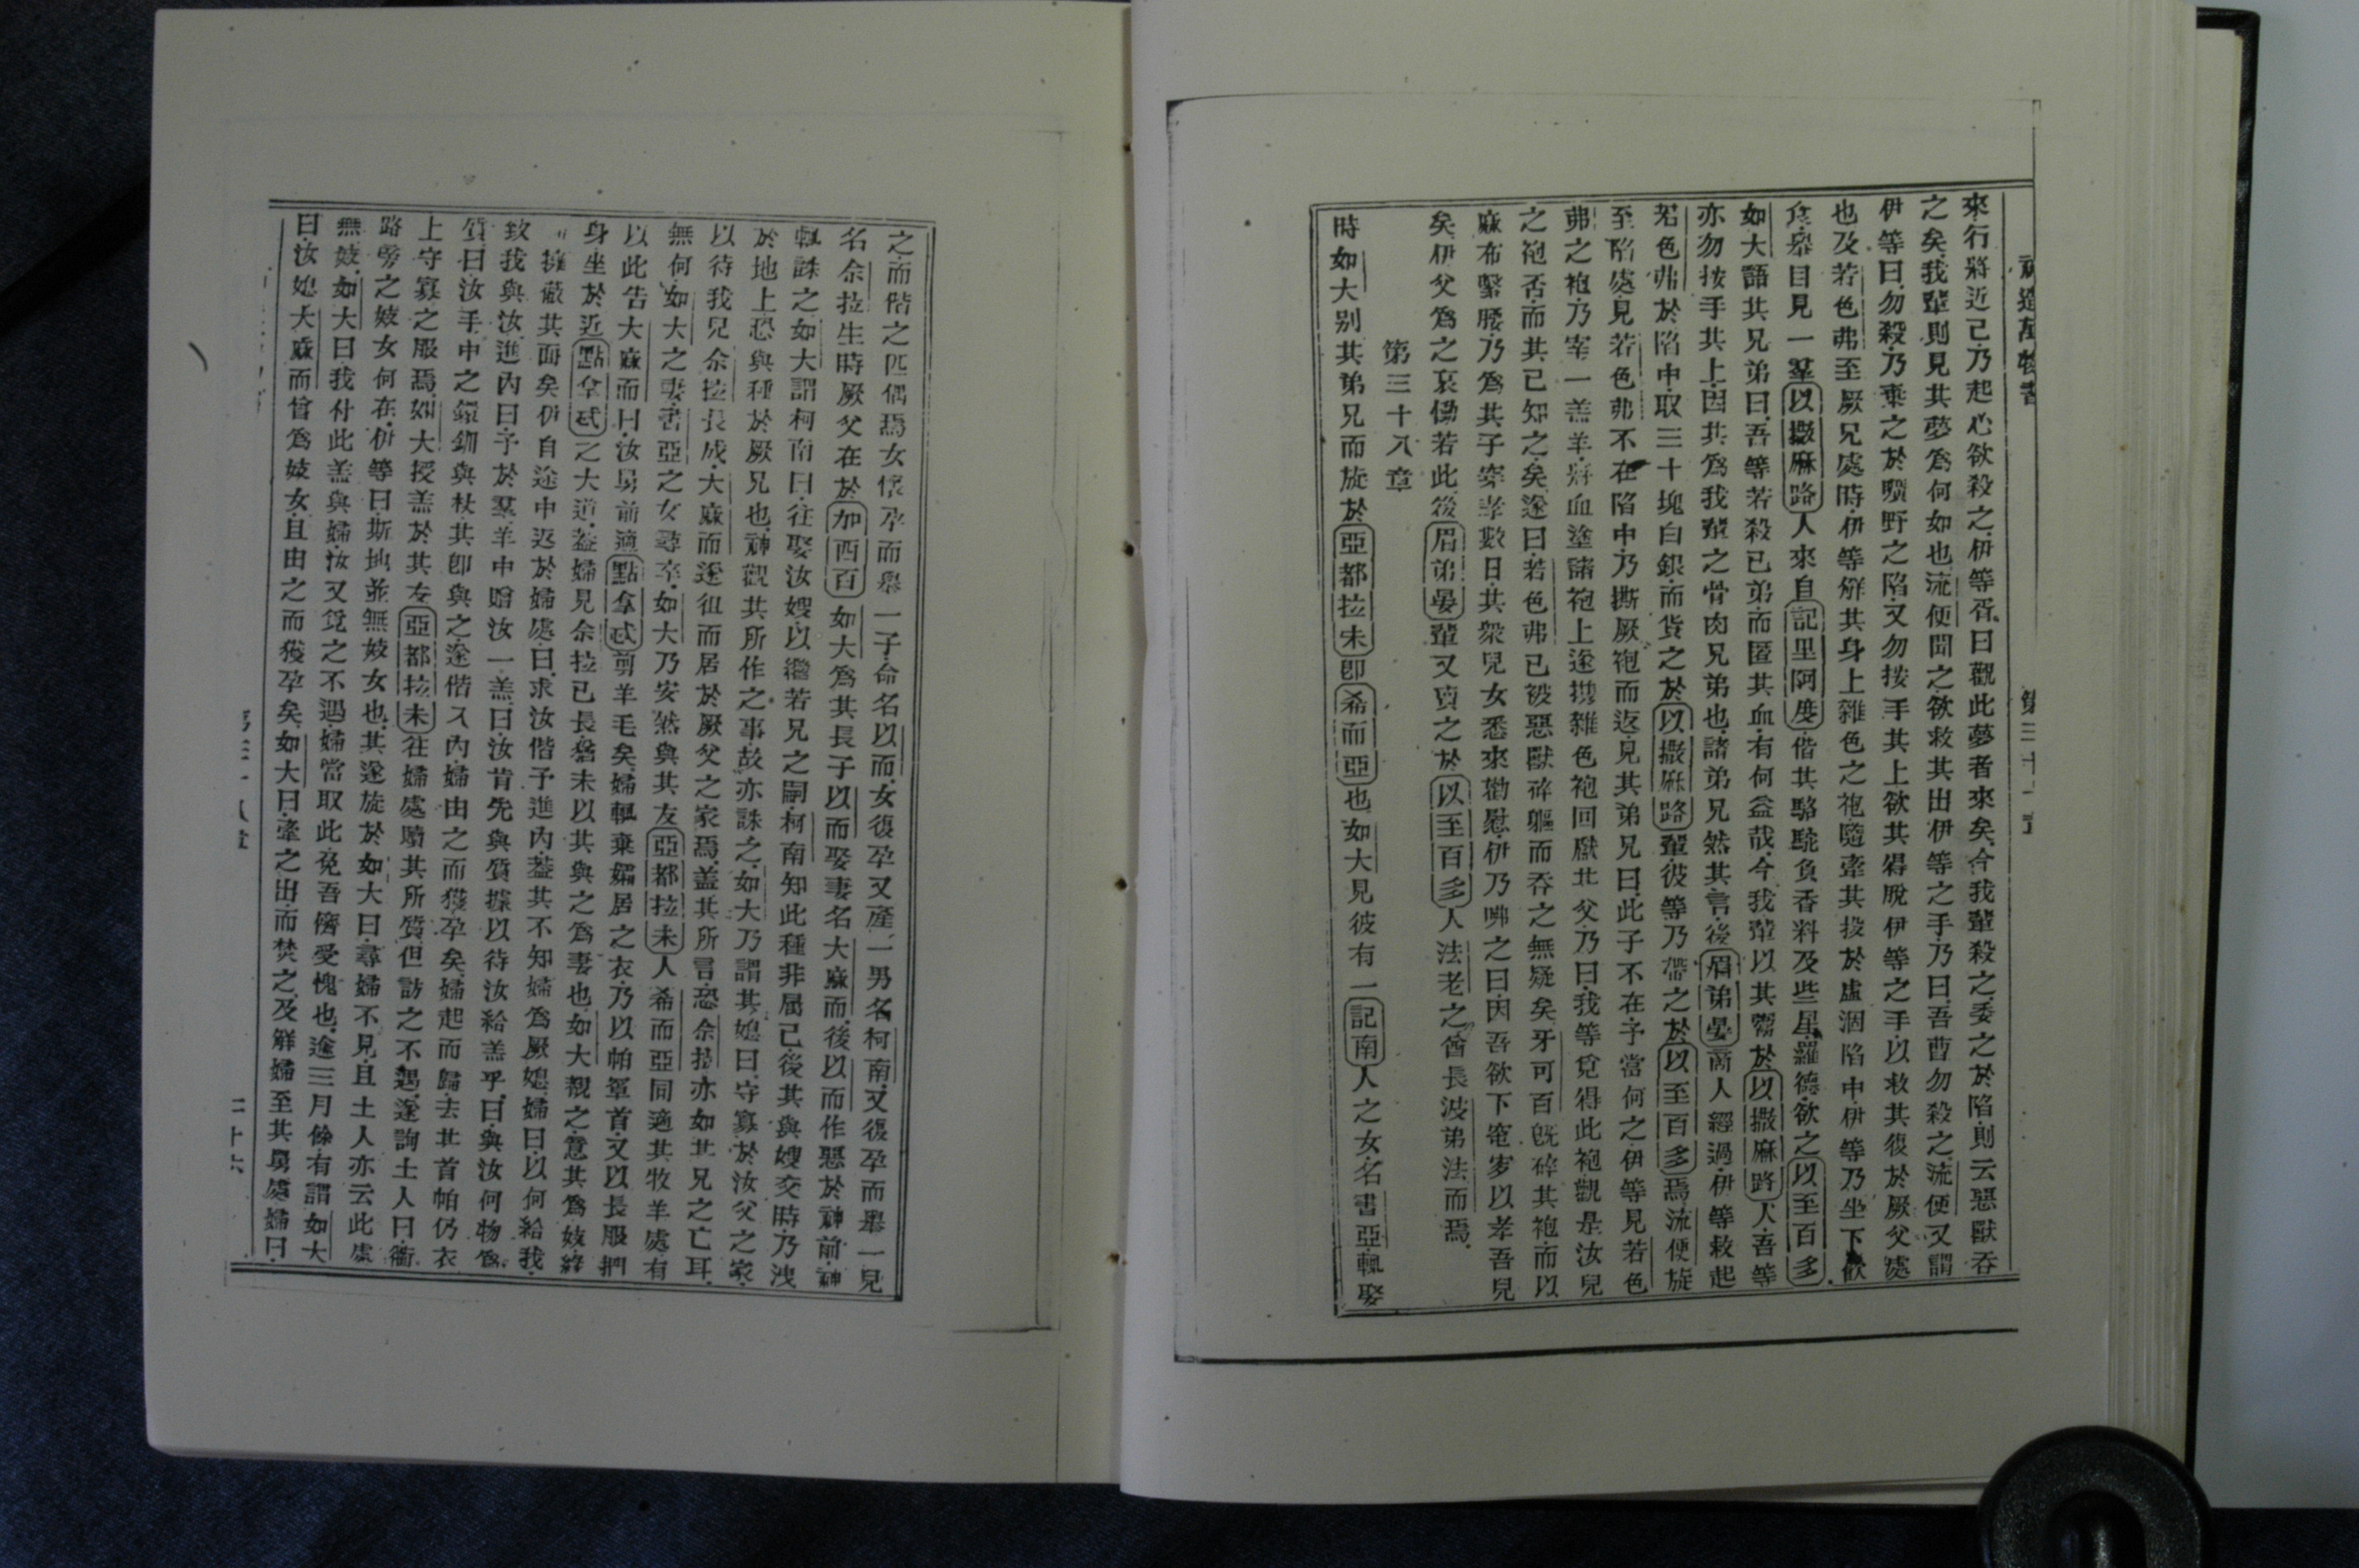 神造萬物書 第三十七章
來行將近己乃起心欲殺之伊等胥曰觀此夢者來矣今我輩殺之委之於陷則云惡獸吞
之矣我輩則見其夢爲何如也流便聞之欲救其出伊等之手乃曰吾曹勿殺之流便又謂
伊等曰勿殺乃棄之於曠野之陷又勿按手其上欲其得脫伊等之手以救其復於厥父處
也及若色弗至厥兄處時伊等解其身上雜色之袍隨牽其投於虛涸陷中伊等乃坐下歡
食舉目見一羣以撒麻路人來自記里阿度偕其駱駝負香料及些星羅德欲之以至百多
如大語其兄弟曰吾等若殺己弟而匿其血有何益哉今我輩以其鬻於以撒麻路人吾等
亦勿按手其上因其爲我輩之骨肉兄弟也諸弟兄然其言後眉弟晏商人經過伊等救起
若色弗於陷中取三十塊白銀而貨之於以撒麻路輩彼等乃帶之於以至百多焉流便旋
至陷處見若色弗不在陷中乃撕厥袍而返見其弟兄曰此子不在予當何之伊等見若色
弗之袍乃宰一善羊將血塗諸袍上遂攜雜色袍回厥北父乃曰我等覓得此袍觀是汝兒
之袍否而其已知之矣遂曰若色弗已被惡獸碎軀而吞之無疑矣牙可百旣碎其袍而以
麻布繫腰乃爲其子穿孝數日其衆兒女悉來勸慰伊乃咈之曰因吾欲下窀穸以孝吾兒
矣伊父爲之哀慟若此後眉弟晏輩又賣之於以至百多人法老之酋長波弟法而焉
第三十八章
時如大別其弟兄而旋於亞都拉未卽希而亞也如大見彼有一記南人之女名書亞輒娶
之而偕之匹偶焉女懷孕而舉一子命名以而女復孕又產一男名柯南又復孕而舉一兒
名佘拉生時厥父在於加西百如大爲其長子以而娶妻名大麻而後以而作惡於神前神
輒誅之如大謂柯南曰往娶汝嫂以繼若兄之嗣柯南知此種非屬己後其與嫂交時乃洩
於地上恐與種於厥兄也神觀其所作之事故亦誅之如大乃謂其媳曰守寡於汝父之家
以待我兒佘拉長成大麻而遂徂而居於厥父之家焉蓋其所言恐佘拉亦如其兄之亡耳
無何如大之妻書亞之女尋卒如大乃安然與其友亞都拉未人希而亞同適其牧羊處有
以此告大麻而曰汝舅前適點拿忒剪羊毛矣婦輒棄孀居之衣乃以帕罩首又以長服捫
身坐於近點拿忒之大道蓋婦見佘拉已長猶未以其與之爲妻也如大覩之意其爲妓緣
擁蔽其面矣伊自途中返於婦處曰求汝偕予進內蓋其不知婦爲厥媳婦曰以何給我
致我與汝進內曰予於羣羊中贈汝一羔曰汝肯先與質據以待汝給羔乎曰與汝何物爲
質曰汝手中之鐶釧與杖其卽與之遂偕入內婦由之而獲孕矣婦起而歸去其首帕仍衣
上守寡之服焉如大授羔於其友亞都拉未往婦處贖其所質但訪之不遇遂詢土人曰衢
路旁之妓女何在伊等曰斯地並無妓女也其遂旋於如大曰尋婦不見且土人亦云此處
無妓如大曰我付此羔與婦汝又覓之不遇婦當取此免吾儕受愧也途三月餘有謂如大
曰汝媳大麻而曾爲妓女且由之而獲孕矣如大曰牽之出而焚之及解婦至其舅處婦曰
第三十八章 二十六